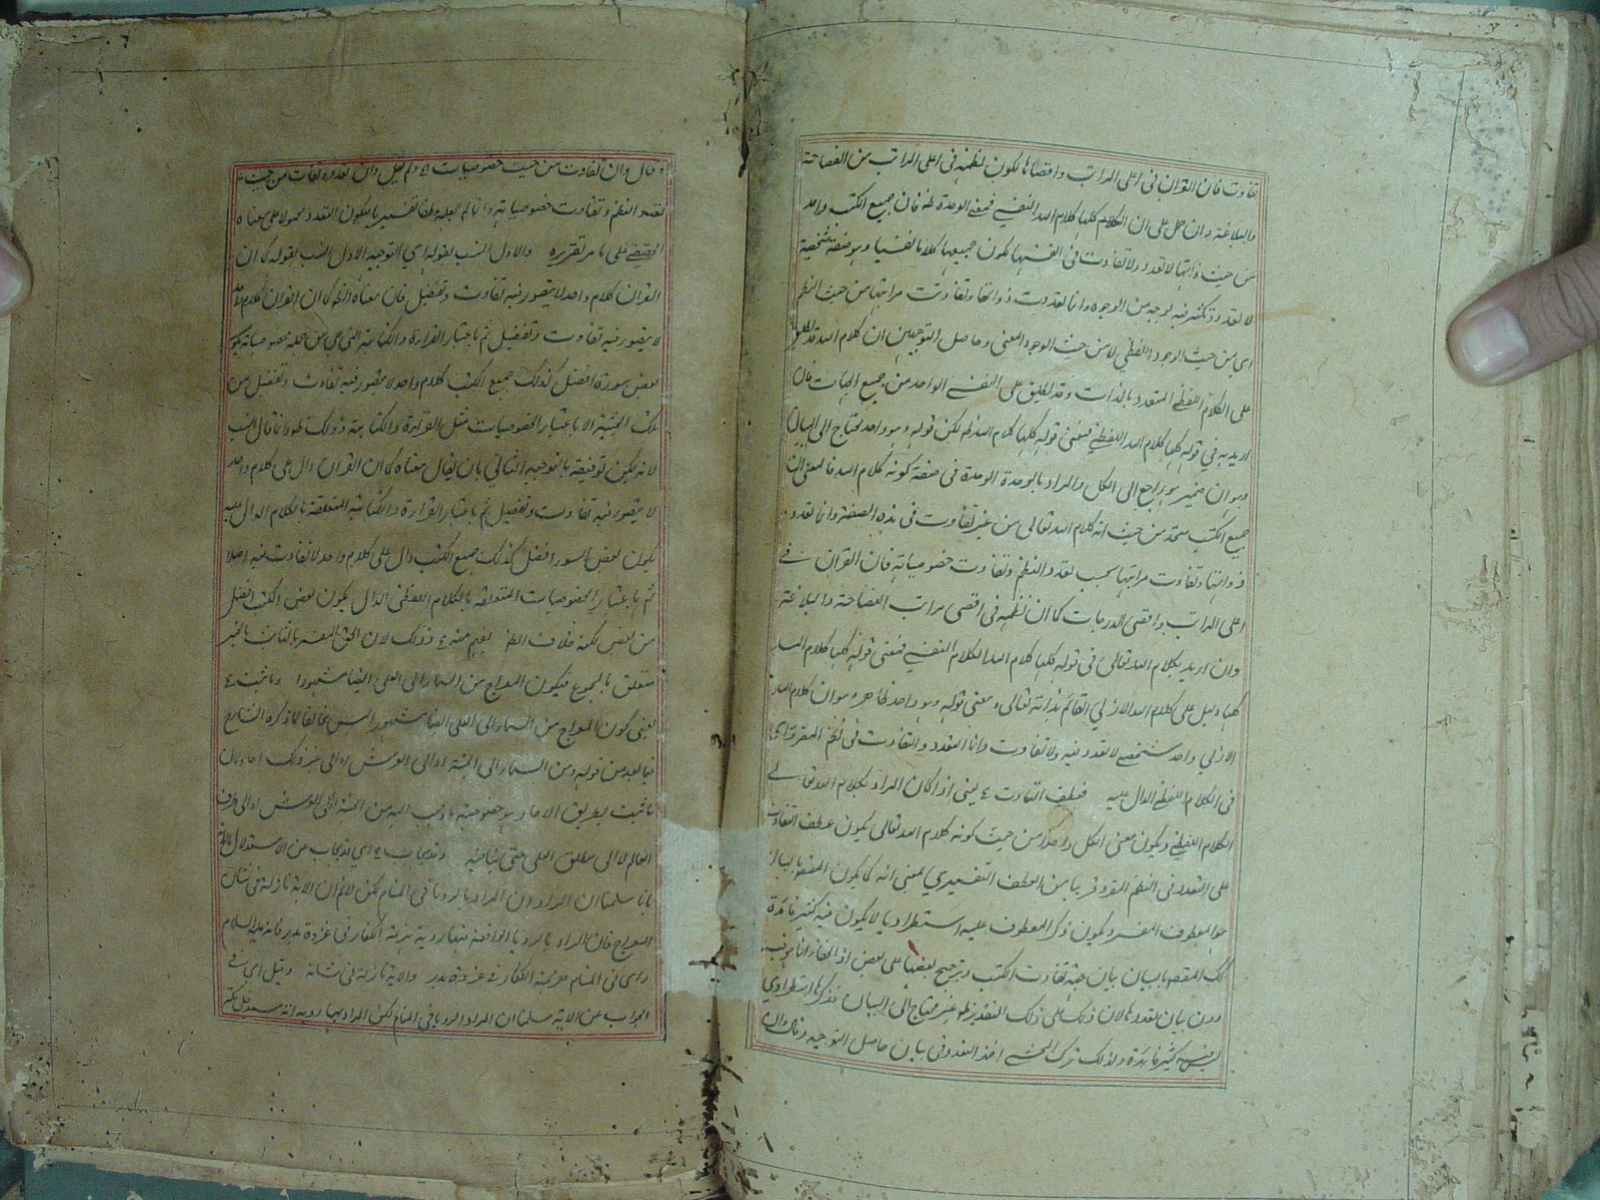 تفاوت فان القران فى اعلى المراتب واقصاها لكون نظمه فى اعلى المراتب من الفصاحة
والبلاغة وان حمل على ان الكلام كلها كلام الله النفسى فمعنى الوحدة ظ فان جميع الكتب واحد
من حيث ذاتها لا تعدد ولا تفاوت فى انفسها لكون جميعها كلاما نفسيا وهو صفة شخصية
لا تعدد ولا تكثر فيه بوجه من الوجوه وانما تعددت ذواتها وتفاوتت مراتبها من حيث النظم
اى من حيث الوجود اللفظى لا من حيث الوجود المعنى وحاصل التوجيهين ان كلام الله قد يطلق
على الكلام اللفظى المتعدد بالذات وقد يطلق على النفسى الواحد من جميع الجهات فان
اريد به فى قوله كلها كلام الله اللفظى فمعنى قوله كلها كلام الله ظ لكن قوله وهو واحد محتاج الى البيان
وهو ان ضمير هو راجع الى الكل والمراد بالوحدة الوحدة فى صفة كونه كلام الله فالمعنى ان
جميع الكتب متحد من حيث انه كلام الله تعالى من غير تفاوت فى هذه الصفة وانما تعدد
ذواتها وتفاوت مراتبها بحسب تعدد النظم وتفاوت خصوصياته فان القران فى
اعلى المراتب واقصى الدرجات كما ان نظمه فى اقصى مراتب الفصاحة والبلاغة
وان اريد بكلام الله تعالى فى قوله كلها كلام الله الكلام النفسى فمعنى قوله كلها كلام الله
كلها دليل على كلام الله الازلى القائم بذاته تعالى ومعنى قوله وهو واحد ظاهر هو ان كلام الله
الازلى واحد شخصى لا تعدد فيه ولا تفاوت وانما التعدد والتفاوت فى نظم المقرو اى
فى الكلام اللفظى الدال عليه فعطف التفاوت يعنى اذا كان المراد بكلام الله تعالى
الكلام اللفظى ويكون معنى الكل واحد من حيث كونه كلام الله تعالى يكون عطف التفاوت
على التعدد فى النظم المقرو قريبا من العطف التفسيرى بمعنى انه كما يكون المقصود بالبيان
هو المعطوف المفسر ويكون ذكر المعطوف عليه استطراديا لا يكون فيه كثير فائدة
كك المقصود بالبيان بيان جهة تفاوت الكتب وترجيح بعضها على بعض
دون بيان تعددها لان ذلك على ذلك التقدير ظ غير محتاج الى البيان فذكرها استطرادى
ليس فيه كثير فائدة ولذلك ترك المحشى اخذ التعدد فى بيان حاصل التوجيه وقال وان
وقال وان تفاوت من حيث خصوصيات ولم يقل وان تعدد وتفاوت من حيث
تعدد النظم وتفاوت خصوصياته وانما لم يجعله عطفا تفسيريا ليكون التعدد محمولا على معناه
الحقيقى على ما مر تقريره والاول انسب بقوله اى التوجيه الاول انسب بقوله كما ان
القران كلام واحد لا يتصور فيه تفاوت وتفضيل فان معناه الظ كما ان القران كلام واحد
لا يتصور فيه تفاوت وتفضيل ثم باعتبار القراءة والكتابة التى هى من جملة خصوصياته يكون
بعض سورة افضل كذلك جميع الكتب كلام واحد لا يتصور فيه تفاوت وتفضيل من
تلك الحيثية الا باعتبار الخصوصيات مثل القراءة والكتابة وانما قال انسب
لانه يمكن توفيقه بالتوجيه الثانى بان يقال معناه كما ان القران دال على كلام واحد
لا يتصور فيه تفاوت وتفضيل ثم باعتبار القراءة والكتابة المتعلقة بالكلام الدال عليه
يكون بعض السور افضل كذلك جميع الكتب دال على كلام واحد لا تفاوت فيه اصلا
ثم باعتبار الخصوصيات المتعلقة بالكلام اللفظى الدال يكون بعض الكتب افضل
من بعض لكنه خلاف الظ يفهم منه وذلك لان الثابت بالخبر
متعلق بالمجموع فيكون المعراج من السماء الى العلى ايضا مشهورا وما ثبت
يعنى كون المعراج من السماء الى العلى ايضا مشهورا ليس مخالفا لما ذكره الشارح
فيما بعد من قوله ومن السماء الى الجنة او الى العرش او الى غير ذلك احاد لان
ما ثبت بطريق الاحاد هو خصوصية ما ذهب اليه من الجنة او الى العرش او الى طرف
العالم لا الى مطلق العلى حتى ينافيه وقد يجاب اى قد يجاب عن الاستدلال بالاية
بانا سلمنا ان المراد بالرؤيا فى المنام لكن لا نم ان الاية نازلة فى شان
المعراج فان المراد بالرويا الواقعة فيها رؤية هزيمة الكفار فى غزوة بدر فانه عليه السلام
راى فى المنام هزيمة الكفار فى غزوة بدر والاية نازلة فى شانه وقيل اى فى
الجواب عن الاية سلمنا ان المراد الرويا فى المنام لكن المراد بها رويه انه سيدخل مكة